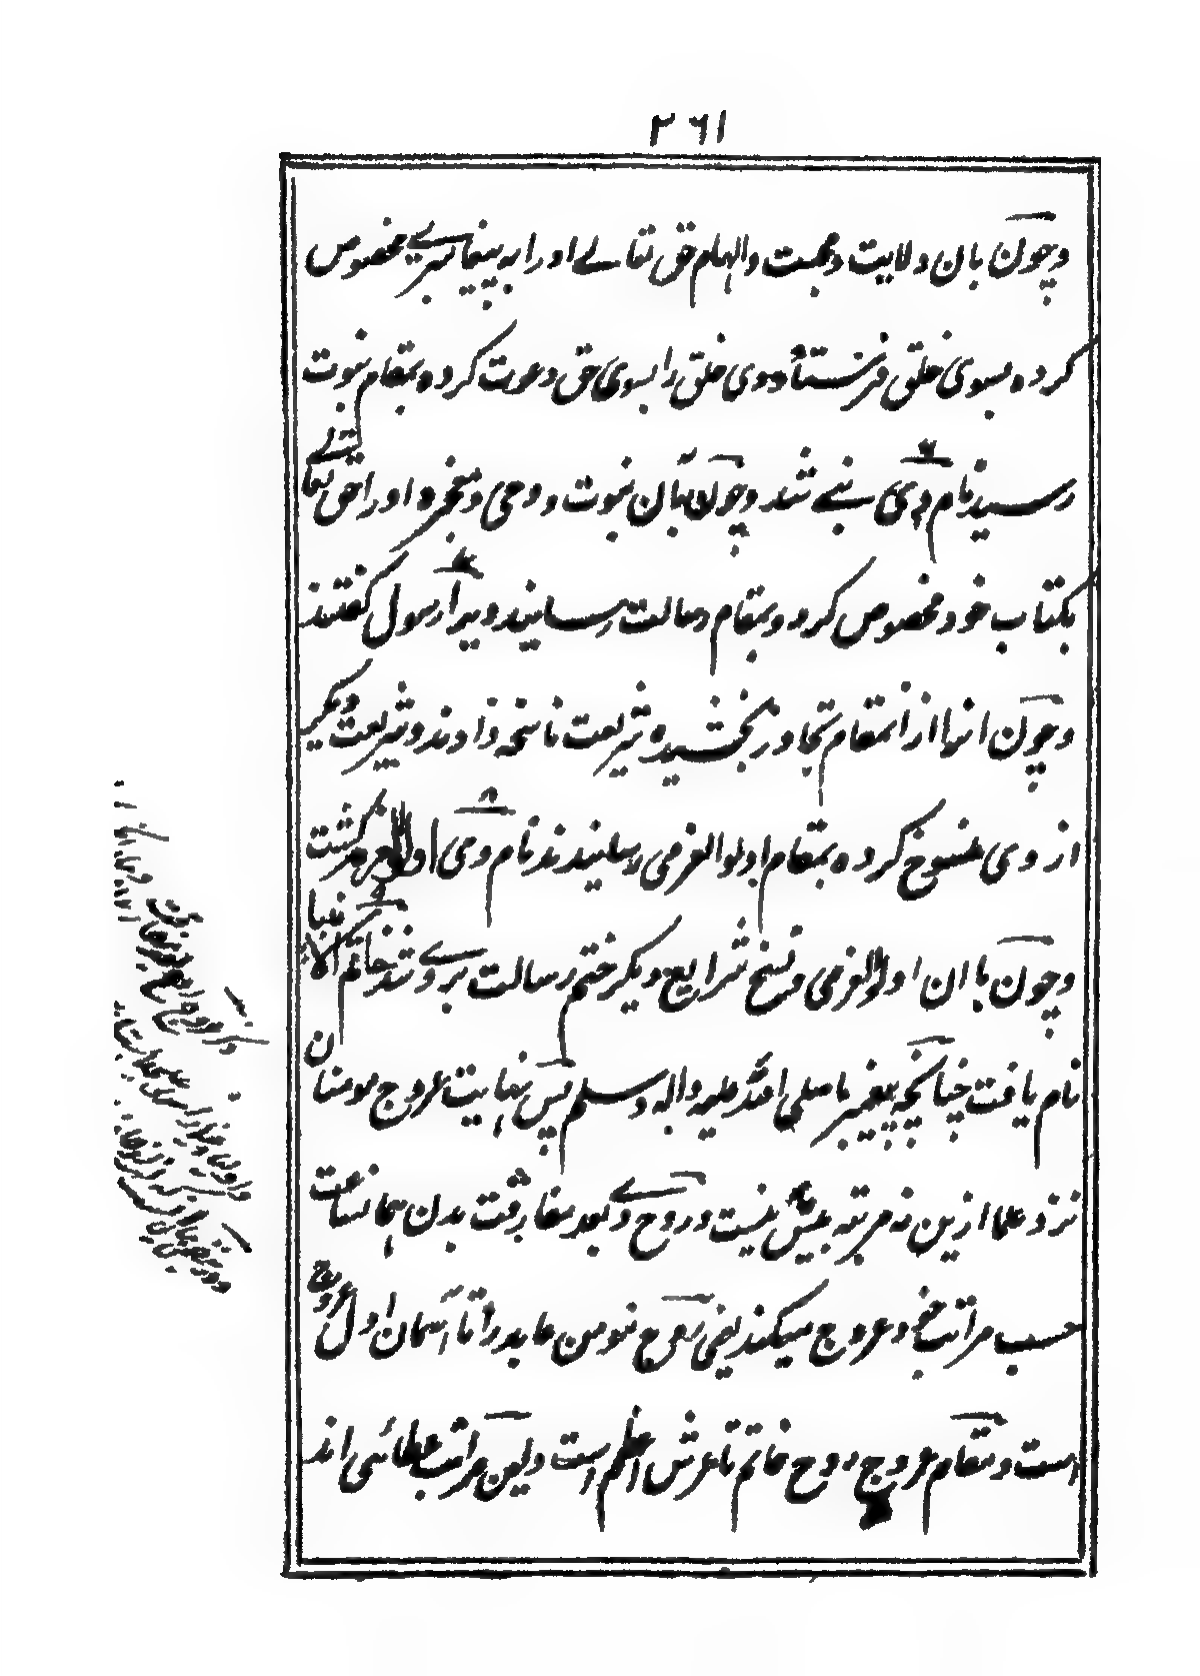 ۲۶۱
وچون بان ولایت ومحبت والهام حق تعالے اورا به پیغامبرے مخصوص
کرده بسوی خلق فرستاد وی خلق را بسوی حق دعوت کرده بمقام نبوت
رسید نام وی نبے شد وچون بآن نبوت و وحی ومعجزه اورا حق تعالے
بکتاب خود مخصوص کرد وبمقام رسالت رسانیدند ویرا رسول گفتند
وچون انرا ازانمقام تجاوز بخشیده شریعت ناسخه دادند وشریعت دیگر
از وی منسوخ کرده بمقام اولوالعزمی رسانیدند نام وی اولوالعزم گشت
وچون با ان اولوالعزمی ونسخ شرایع دیگر ختم رسالت برو شد خاتم الانبیا
نام یافت چنانچه پیغمبر ما صلی الله علیه واله وسلم پس نهایت عروج مومنان
نزد علما ازین نه مرتبه بیش نیست وروح وے بعد مفارقت بدن بهمانساعت
حسب مراتب خود عروج میکند یعنی روح مومن عابد را تا آسمان اول عروج
است ومقام عروج روح خاتم تا عرش اعظم است واین مراتب عطائی اند